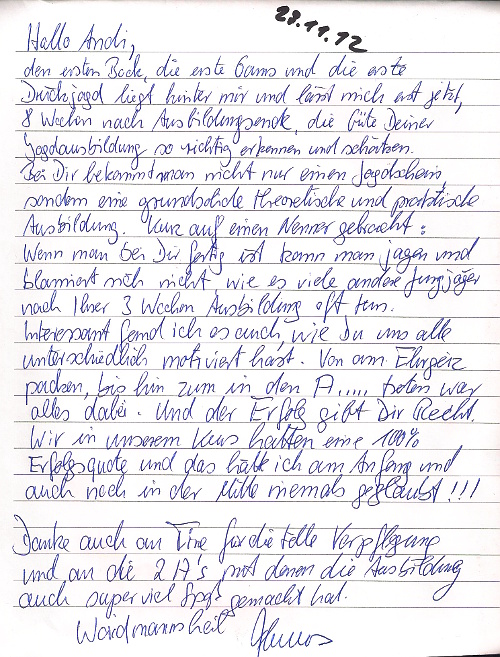 23.11.12
Hallo Andi,
den ersten Bock, die erste Gams und die erste
Drückjagd liegt hinter mir und lässt mich erst jetzt,
8 Wochen nach Ausbildungsende, die Güte Deiner
Jagdausbildung so richtig erkennen und schätzen.
Bei Dir bekommt man nicht nur einen Jagdschein,
sondern eine grundsolide theoretische und praktische
Ausbildung. Kurz auf einen Nenner gebracht:
Wenn man bei Dir fertig ist kann man jagen und
blamiert sich nicht, wie es viele andere Jungjäger
nach Ihrer 3 Wochen Ausbildung oft tun.
Interessant fand ich es auch, wie Du uns alle
unterschiedlich motiviert hast. Von am Ehrgeiz
packen, bis hin zum in den A..... treten war
alles dabei. Und der Erfolg gibt Dir Recht.
Wir in unserem Kurs hatten eine 100%
Erfolgsquote und das hätte ich am Anfang und
auch noch in der Mitte niemals geglaubt!!!
Danke auch an Tine für die tolle Verpflegung
und an die 2 A's, mit denen die Ausbildung
auch super viel Spaß gemacht hat.
Waidmannsheil